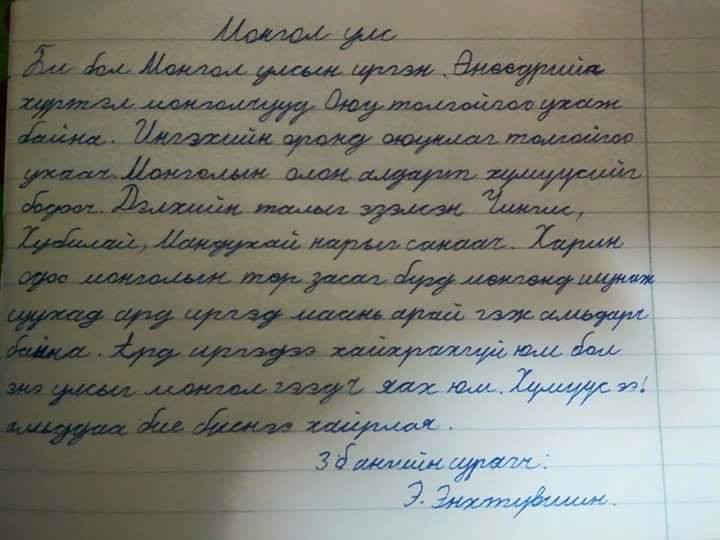 Монгол улс
Би бол Монгол улсын иргэн. Өнөөдрийн
хүртэл монголчууд Оюу толгойгоо ухаж
байна. Ингэхийн оронд оюунлаг толгойгоо
ухаач. Монголын олон алдарт хүмүүсийг
бодооч. Дэлхийн талыг эзэлсэн Чингис,
Хубилай, Мандухай нарыг санаач. Харин
одоо монголын төр засаг бүрд мөнгөнд шунаж
суухад ард иргэд маань арай гэж амьдарч
байна. Ард иргэдээ хайхрахгүй юм бол
энэ улсыг монгол гээд ч яах юм. Хүмүүс ээ!
амьддаа бие биенээ хайрлая.
3б ангийн сурагч:
Э. Энхтүвшин.